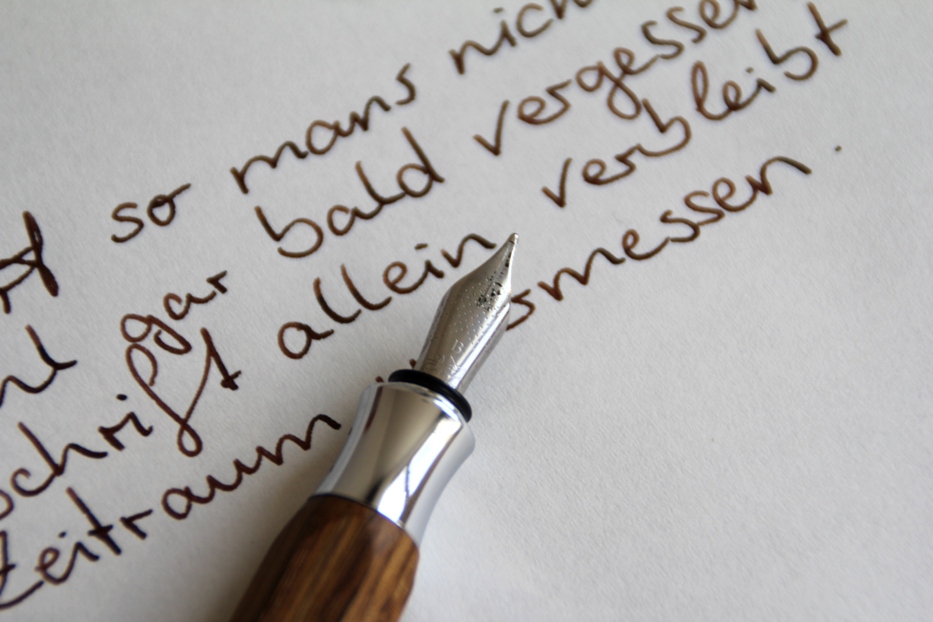 so mans nich
gar bald vergessen
schrift allein verbleibt
Zeitraum smessen.